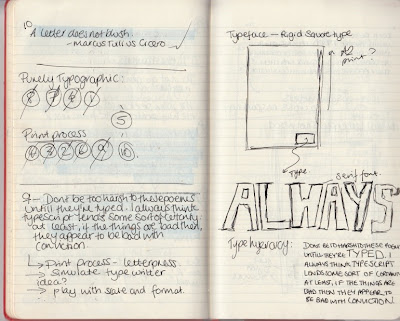 10
A letter does not blush
- Marcus Tullius Cicero
Purely Typographic
8 7 4 1
5
Print process
10 3 2 6 9 10.
9 - Dont be too harsh to these poems
until they're typed. I always think
typescript lends some sort of certainty
at least, if the things are bad then,
they appear to be bad with
conviction
Print process - letterpress
simulate type writer
idea?
play with scale and format.
Typeface - Rigid Square type
A2
print?
TYPE
serif font.
ALWAYS
Type hyerarcy:
DONT BE TO HARSH TO THESE POEMS
UNTIL THEY'RE TYPED. I
ALWAYS THINK TYPESCRIPT
LENDS SOME SORT OF CERTAINTY
AT LEAST, IF THE THINGS ARE
BAD THEN THEY APPEAR TO
BE BAD WITH CONVICTION